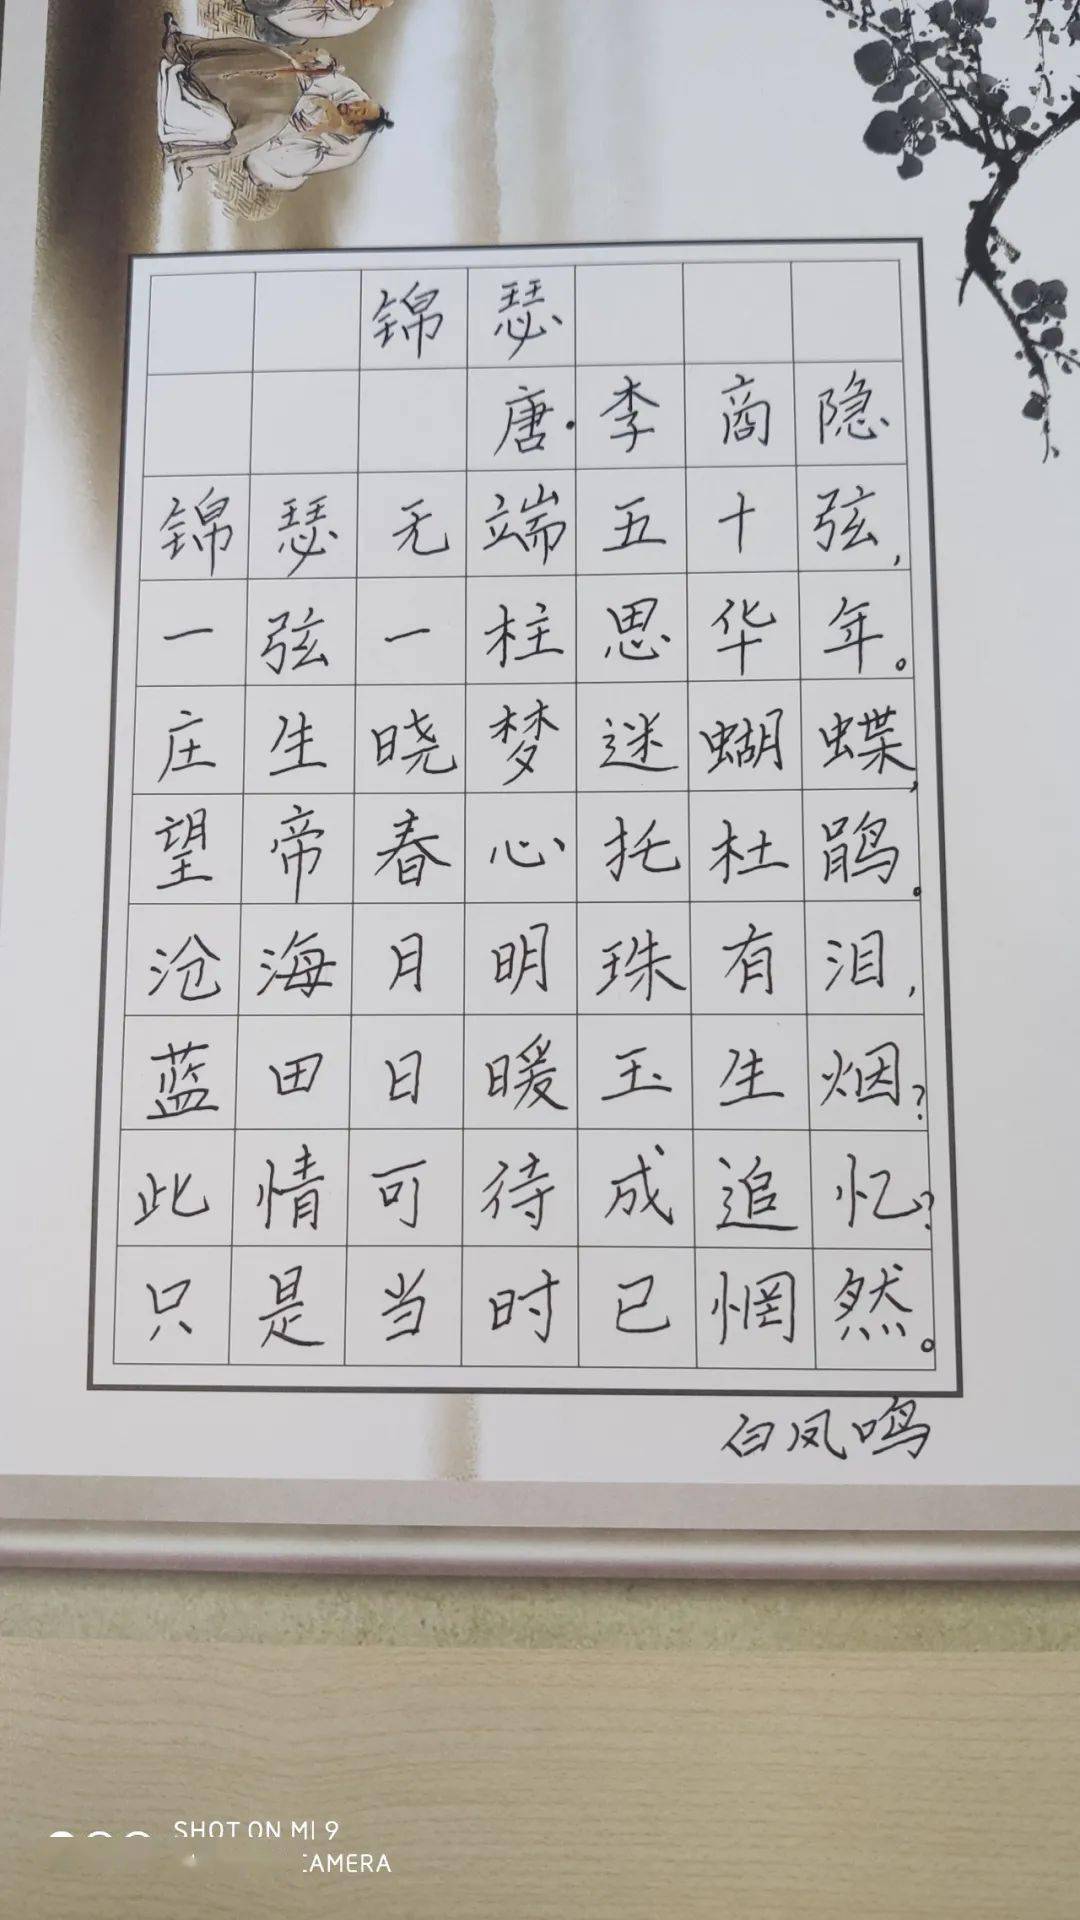 锦瑟
唐·李商隐
锦瑟无端五十弦,
一弦一柱思华年。
庄生晓梦迷蝴蝶,
望帝春心托杜鹃。
沧海月明珠有泪,
蓝田日暖玉生烟?
此情可待成追忆?
只是当时已惘然。
白凤鸣
SHOT ON MI 9
CAMERA